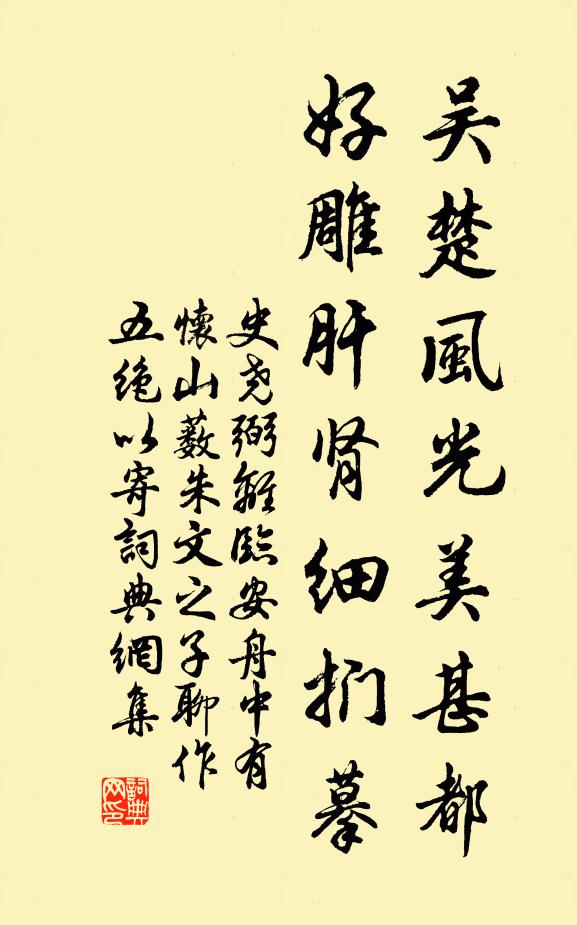 吴楚風光美甚都
好雕肝肾细捫摹
史尧弼離臨安舟中有
懷山薮朱文之子聊作
五絶以寄詞典網集
詞典
网印